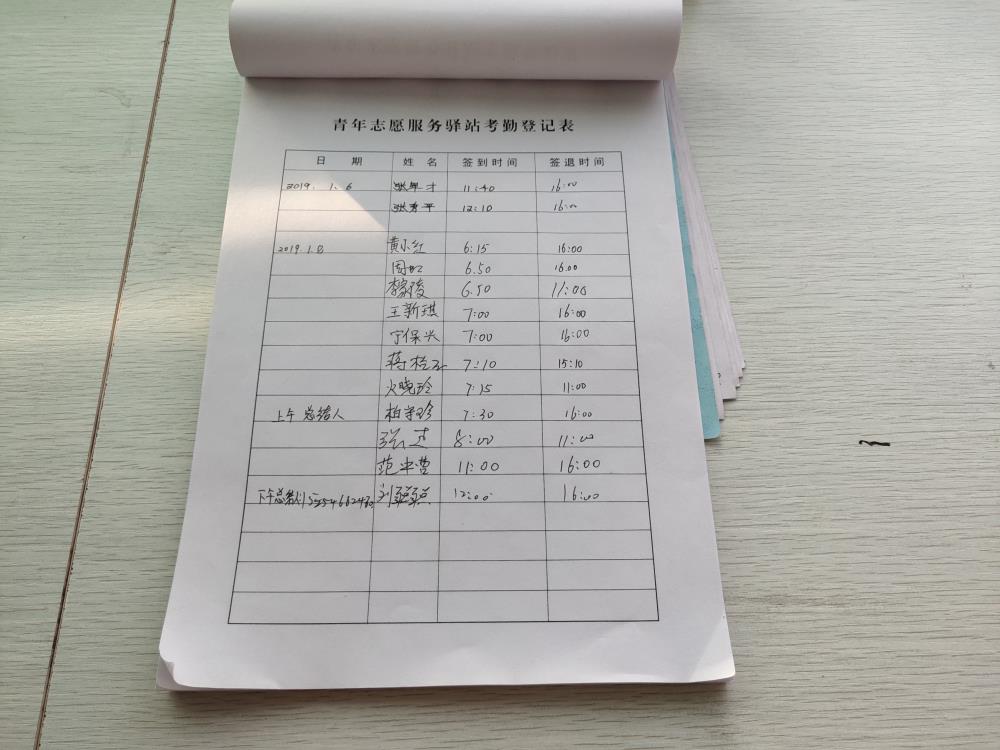 青年志愿服务驿站考勤登记表
日 期 姓 名 签到时间 签退时间
2019. 1. 6 张 才 11:40 16:00
张秀平 12:10 16:00
2019.1.8 黄小红 6:15 16:00
周 6.50 16.00
李 6.50 11:00
王新琪 7:00 16:00
宁保兴 7:00 16:00
蒋 7:10 15:10
火晓玲 7:15 11:00
上午 总结人 柏 珍 7:30 16:00
张 8:00 11:00
范 11:00 16:00
下午总 刘 12:00 16:00